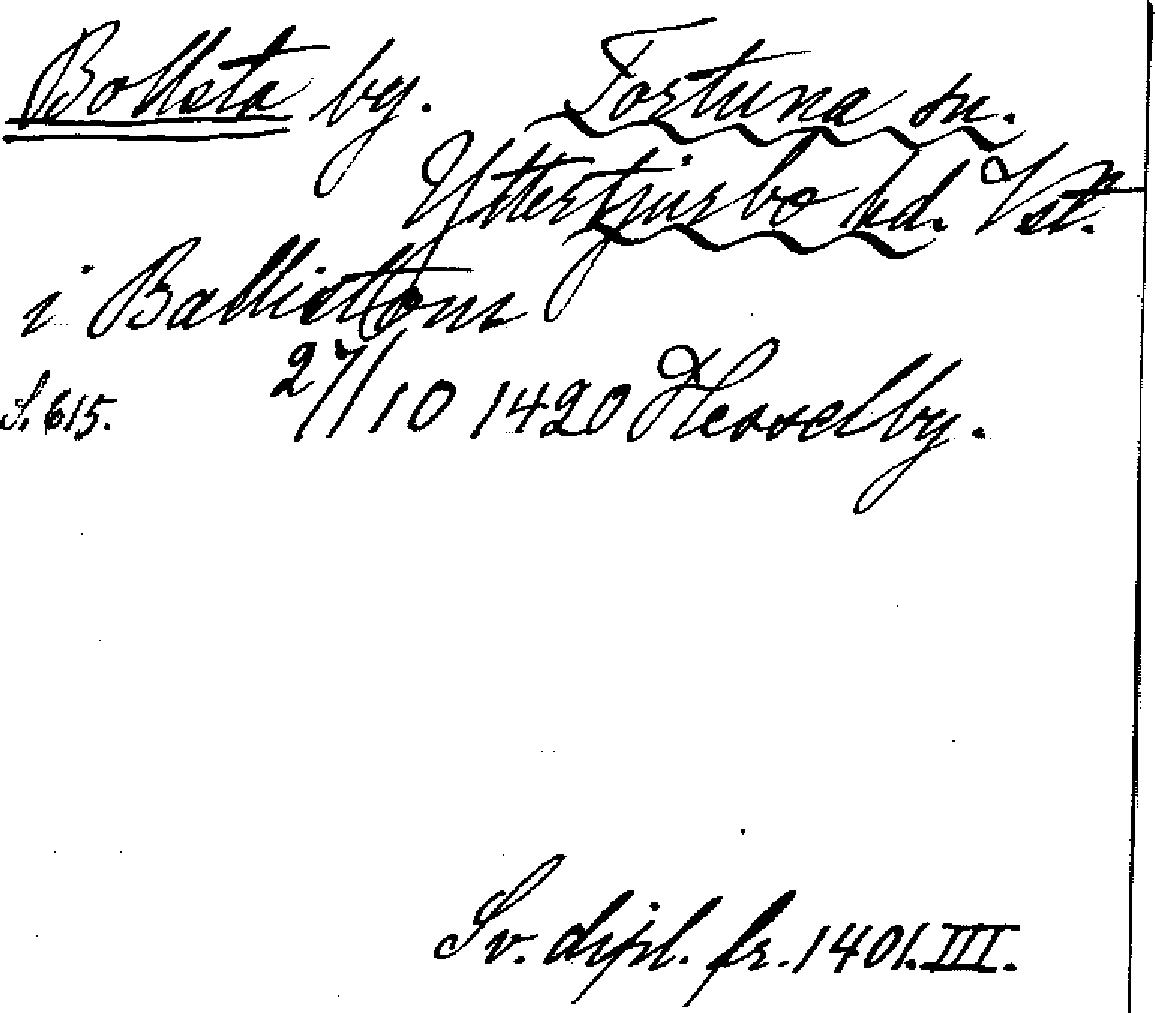 Bollsta by. Fortuna sn.
Yttertjurbo hd. Vstl.
i Ballestom
S. 615. 27/10 1420 Hesselby.
Sv. dipl. fr. 1401. III.